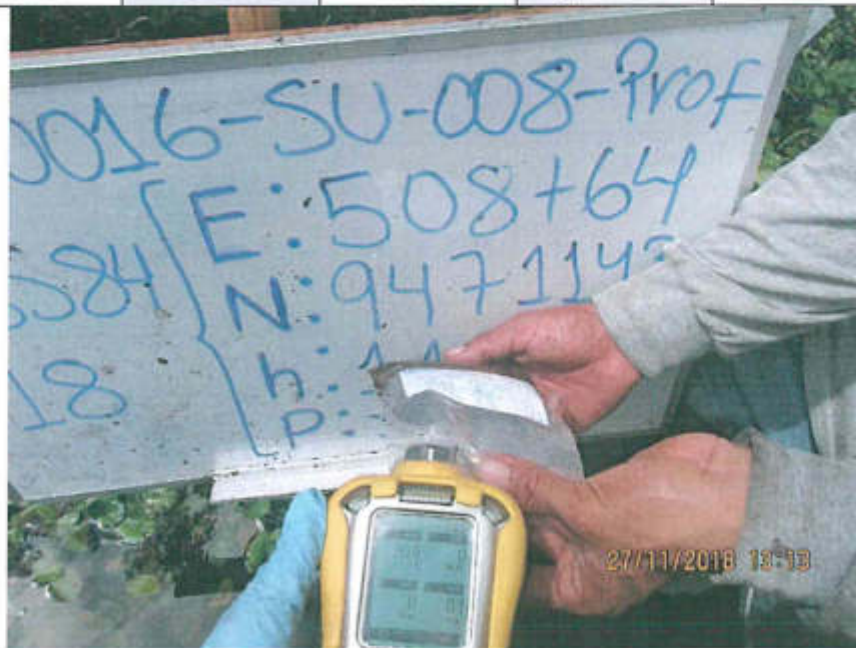 0016-SU-008-Prof
E: 508764
GS84
N: 9471143
18
h: 11
P:
27/11/2018 13:13